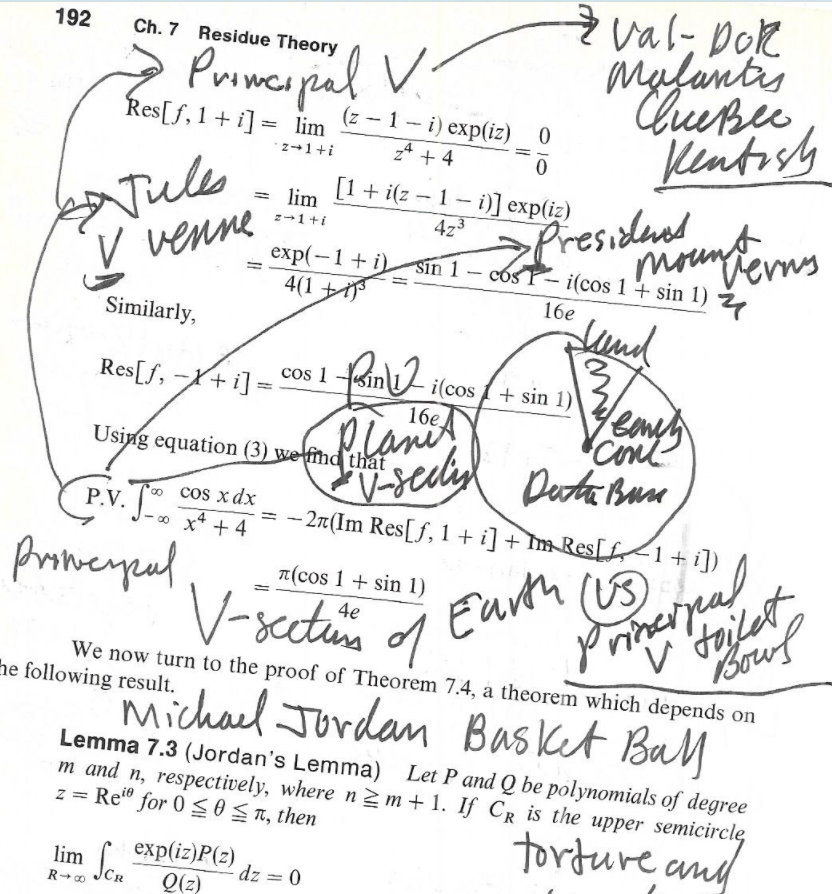 192 Ch. 7 Residue Theory
Principal V
Val-Dor
Res[f, 1 + i] = lim_{z→1+i} (z − 1 − i) exp(iz) / (z⁴ + 4) = 0/0
Kentish
Jules
V venne
= lim_{z→1+i} [1 + i(z − 1 − i)] exp(iz) / 4z³
Mount
= exp(−1 + i) / 4(1 + i)³ = (sin 1 − cos 1 − i(cos 1 + sin 1)) / 16e
Similarly,
PV
Res[f, −1 + i] = (cos 1 − sin 1 − i(cos 1 + sin 1)) / 16e
Planet
V-section
Data Base
Using equation (3) we find that
P.V. ∫_{−∞}^{∞} cos x dx / (x⁴ + 4) = −2π(Im Res[f, 1 + i] + Im Res[f, −1 + i])
Principal
= π(cos 1 + sin 1) / 4e
V-section of Earth (US)
Principal
V
toilet
Bowl
We now turn to the proof of Theorem 7.4, a theorem which depends on
he following result.
Michael Jordan Basket Ball
Lemma 7.3 (Jordan's Lemma) Let P and Q be polynomials of degree
m and n, respectively, where n ≧ m + 1. If C_R is the upper semicircle
z = Re^{iθ} for 0 ≦ θ ≦ π, then
torture and
lim_{R→∞} ∫_{C_R} exp(iz)P(z) / Q(z) dz = 0